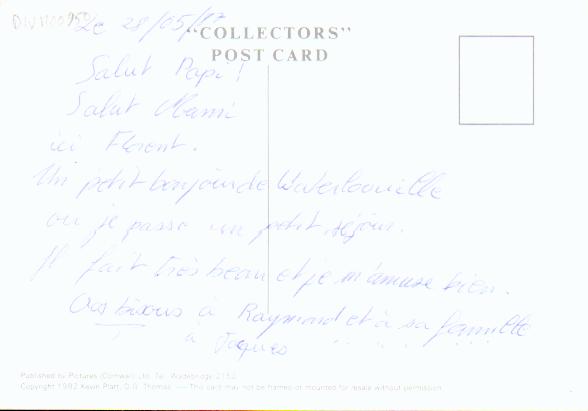 Le 28/05/87
"COLLECTORS"
POST CARD
Salut Papi!
Salut Mami
ici Florent.
Un petit bonjour de Waterlooville
ou je passe un petit séjour.
Il fait très beau et je m'amuse bien.
bisous à Raymond et à sa famille
à Jaques " " " "
Published by Pictures (Cornwall) Ltd. Tel. Wadebridge
Copyright 1982 Kevin Platt, D.G. Thomas — This card may not be framed or mounted for resale without permission.